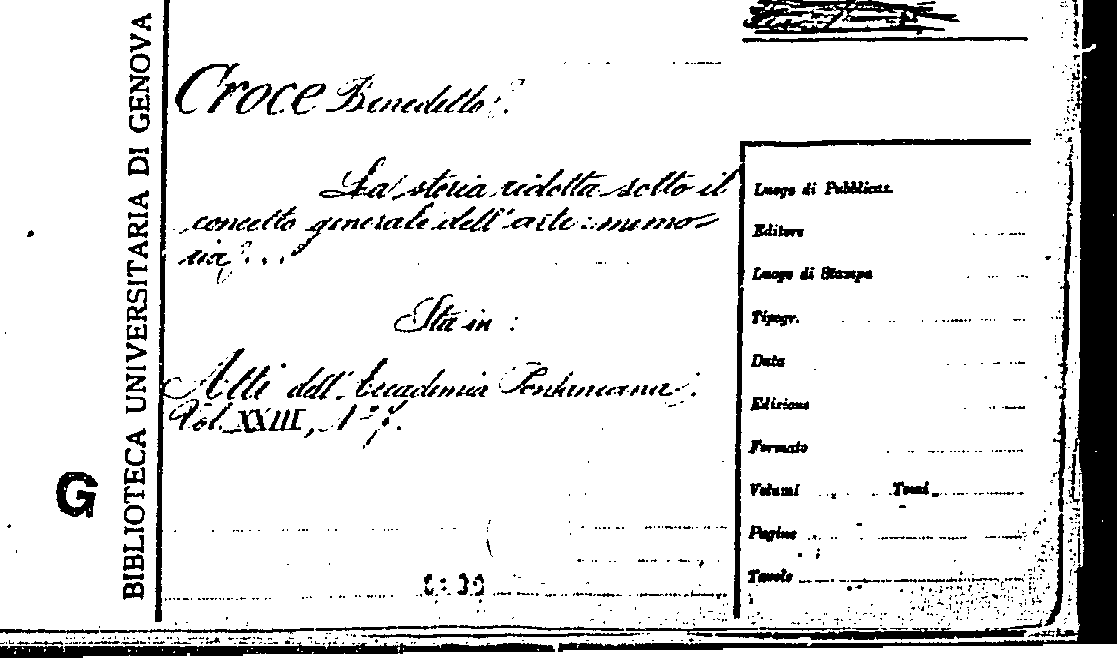 BIBLIOTECA UNIVERSITARIA DI GENOVA
G
Croce Benedetto.
La storia ridotta sotto il
concetto generale dell'arte: memo=
ria...
Sta in :
Atti dell'Accademia Pontaniana.
Vol. XXIII, N° 7.
Luogo di Pubblicaz.
Editore
Luogo di Stampa
Tipogr.
Data
Edizione
Formato
Volumi Tomi
Pagine
Tavole